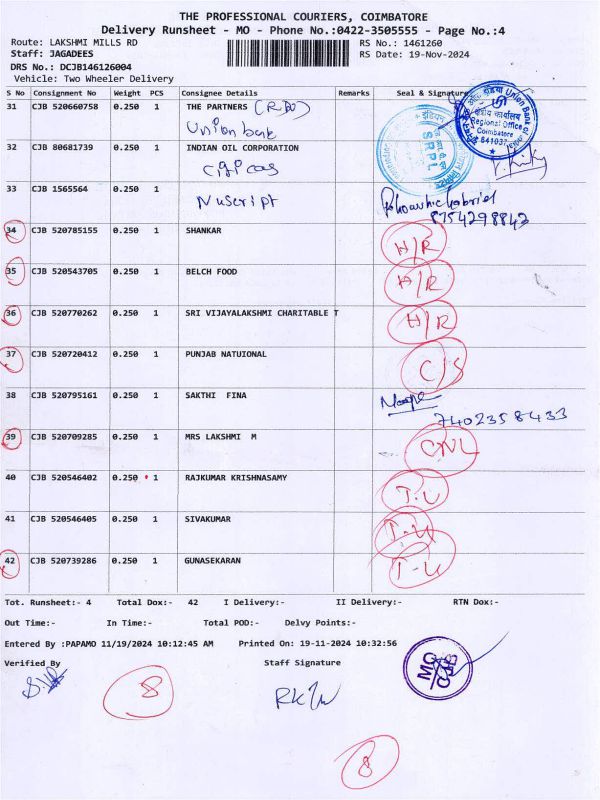 THE PROFESSIONAL COURIERS, COIMBATORE
Delivery Runsheet - MO - Phone No.:0422-3505555 - Page No.:4
Route: LAKSHMI MILLS RD RS No.: 1461260
Staff: JAGADEES RS Date: 19-Nov-2024
DRS No.: DCJB146126004
Vehicle: Two Wheeler Delivery
S No Consignment No Weight PCS Consignee Details Remarks Seal & Signature
31 CJB 520660758 0.250 1 THE PARTNERS (RBO)
Union bank
क्षेत्रीय कार्यालय Regional Office Coimbatore 641037 Union Bank of
32 CJB 80681739 0.250 1 INDIAN OIL CORPORATION
SRPL
33 CJB 1565564 0.250 1
Nuscript
8754298843
34 CJB 520785155 0.250 1 SHANKAR H/R
35 CJB 520543705 0.250 1 BELCH FOOD H/R
36 CJB 520770262 0.250 1 SRI VIJAYALAKSHMI CHARITABLE T H/R
37 CJB 520720412 0.250 1 PUNJAB NATUIONAL C/S
38 CJB 520795161 0.250 1 SAKTHI FINA
7402358433
39 CJB 520709285 0.250 1 MRS LAKSHMI M CNL
40 CJB 520546402 0.250 1 RAJKUMAR KRISHNASAMY I-U
41 CJB 520546405 0.250 1 SIVAKUMAR I-U
42 CJB 520739286 0.250 1 GUNASEKARAN I-U
Tot. Runsheet:- 4 Total Dox:- 42 I Delivery:- II Delivery:- RTN Dox:-
Out Time:- In Time:- Total POD:- Delvy Points:-
Entered By :PAPAMO 11/19/2024 10:12:45 AM Printed On: 19-11-2024 10:32:56
Verified By Staff Signature
MO
CJB
8
8